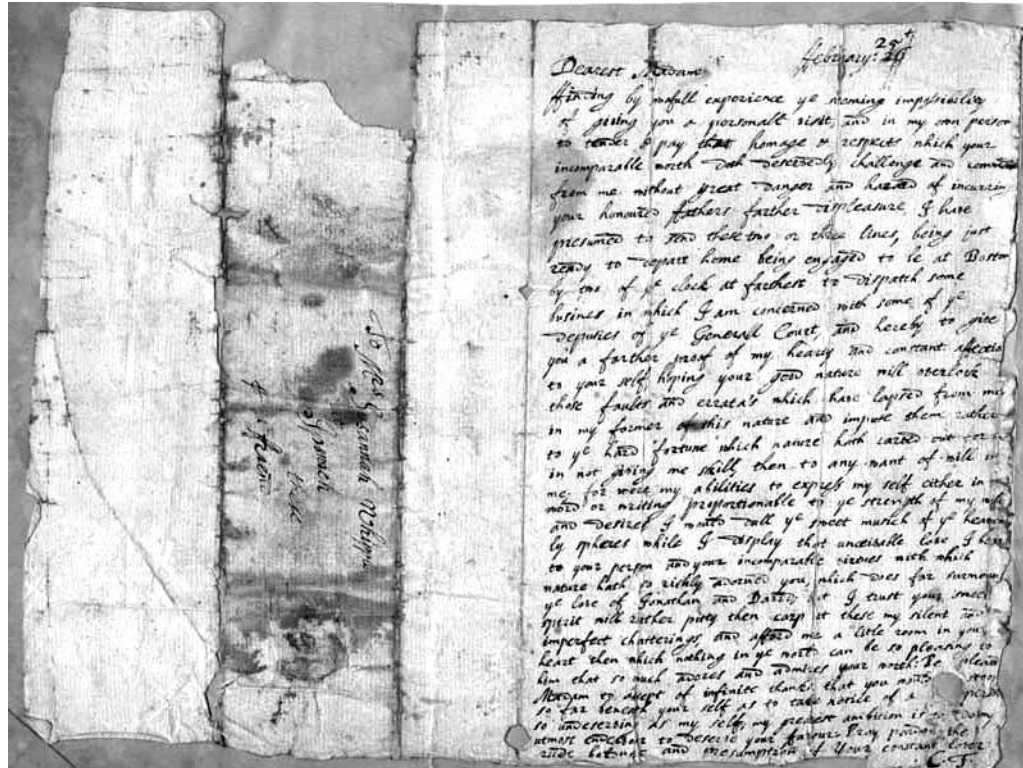 To Mrs Hannah
these
ffebruary: 29
Dearest Madam
ffinding by wofull experience ye seeming impossibility
of giving you a personall visit, and in my own person
to tender & pay that homage & respects which your
incomparable worth doth deservedly challenge and
from me without great danger and hazard of incurring
your honoured fathers farther displeasure, I have
presumed to send these two or three lines, being just
ready to depart home being engaged to be at Boston
by two of ye clock at farthest to dispatch some
busines in which I am concerned with some of ye
deputies of ye Generall Court, and hereby to give
you a farther proof of my hearty and constant affectio
to your self hoping your good nature will overlook
those faults and errata's which have lapsed from me
in my former of this nature and impute them rather
to ye hard fortune which nature hath carved out for
in not giving me skill, then to any want of will in
me, for were my abilities to express my self either in
word or writing proportionable to ye strength of my
and desires I would dull ye sweet musick of ye heaven
ly spheres while I display that love I bear
to your person and your incomparable virtues with which
nature hath so richly adorned you, which does far surmount
ye love of Jonathan and David; but I trust your sweet
spirit will rather pitty then carp at these my silent and
imperfect chatterings, and afford me a litle room in your
heart then which nothing in ye world can be so pleasing to
him that so much adores and admires your worth: Be
Madam to accept of infinite thanks that you would
so far beneath your self as to take notice of a person
so undeserving as my self, my greatest ambition is to do my
utmost endeavour to deserve your favour: Pray pardon the
rude boldness and presumption of Your constant lover
C. T.